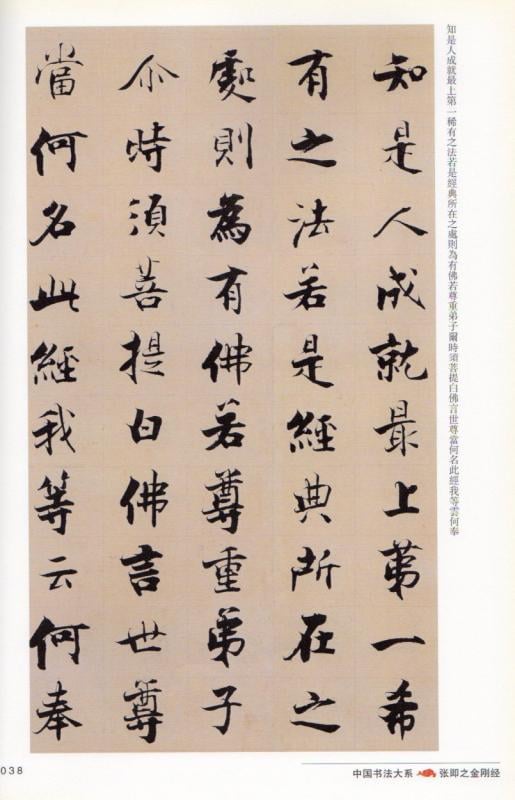 知是人成就最上第一希
有之法若是經典所在之
處則為有佛若尊重弟子
尒時須菩提白佛言世尊
當何名此經我等云何奉
知是人成就最上第一稀有之法若是經典所在之處則為有佛若尊重弟子爾時須菩提白佛言世尊當何名此經我等雲何奉
038
中国书法大系 张即之金刚经